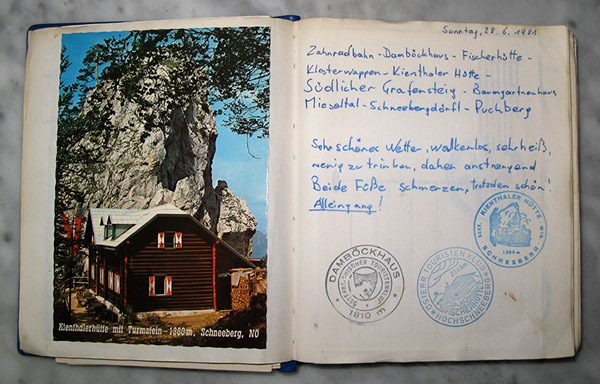 Sonntag, 28. 6. 1981
Zahnradbahn - Damböckhaus - Fischerhütte -
Klosterwappen - Kienthaler Hütte -
Südlicher Grafensteig - Baumgartnerhaus
Mieseltal - Schneebergdörfl - Puchberg
Sehr schönes Wetter, wolkenlos, sehr heiß,
wenig zu trinken, daher anstrengend
Beide Füße schmerzen, trotzdem schön!
Alleingang!
Kienthalerhütte mit Turmstein - 1380 m, Schneeberg, NÖ
KIENTHALER HÜTTE
SCHNEEBERG
DAMBÖCKHAUS
ÖSTERREICHISCHER TOURISTENKLUB
1810 m
ÖSTERR. TOURISTEN KLUB
FISCHERHÜTTE
HOCHSCHNEEBERG